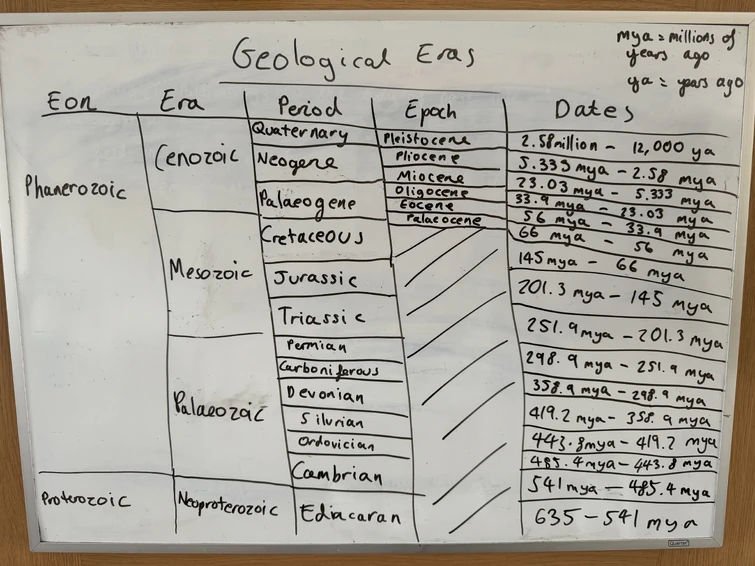 Geological Eras
mya = millions of
years ago
ya = years ago
Eon Era Period Epoch Dates
Phanerozoic Cenozoic Quaternary Pleistocene 2.58million - 12,000 ya
Neogene Pliocene 5.333 mya - 2.58 mya
Miocene 23.03 mya - 5.333
Palaeogene Oligocene 33.9 mya - 23.03 mya
Eocene 56 mya - 33.9 mya
Palaeocene 66 mya - 56 mya
Mesozoic Cretaceous 145 mya - 66 mya
Jurassic 201.3 mya - 145 mya
Triassic 251.9 mya - 201.3 mya
Palaeozoic Permian 298.9 mya - 251.9 mya
Carboniferous 358.9 mya - 298.9 mya
Devonian 419.2 mya - 358.9 mya
Silurian 443.8 mya - 419.2 mya
Ordovician 485.4 mya - 443.8 mya
Cambrian 541 mya - 485.4 mya
Proterozoic Neoproterozoic Ediacaran 635 - 541 mya